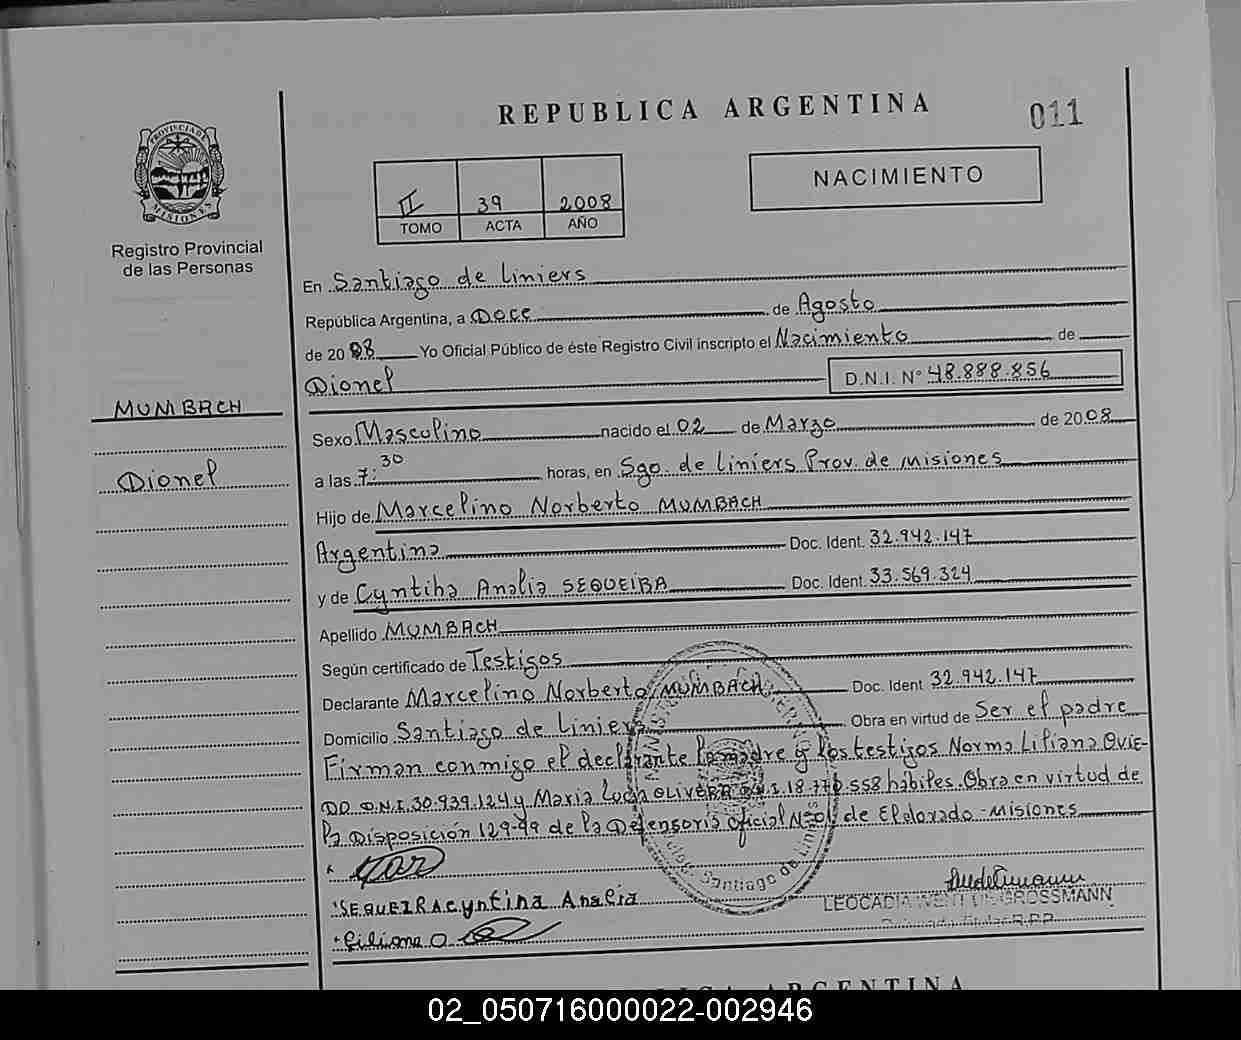 REPUBLICA ARGENTINA
011
PROVINCIA DE
MISIONES
Registro Provincial
de las Personas
II 39 2008
TOMO ACTA AÑO
NACIMIENTO
En Santiago de Liniers
República Argentina, a Doce de Agosto
de 2008 Yo Oficial Público de éste Registro Civil inscripto el Nacimiento de
Dionel D.N.I. Nº 48.888.856
MUMBACH
Dionel
Sexo Masculino nacido el 02 de Marzo de 2008
a las 7:30 horas, en Sgo. de Liniers Prov. de Misiones
Hijo de Marcelino Norberto MUMBACH
Argentina Doc. Ident. 32.942.147
y de Cyntiha Analia SEQUEIRA Doc. Ident. 33.569.324
Apellido MUMBACH
Según certificado de Testigos
Declarante Marcelino Norberto MUMBACH Doc. Ident 32.942.147
Domicilio Santiago de Liniers Obra en virtud de Ser el padre
Firman conmigo el declarante la madre y los testigos Norma Liliana OVIE-
DO D.N.I. 30.939.124 y Maria OLIVERA D.N.I. 18.776.558 hábiles. Obra en virtud de
la Disposición 129-99 de la Defensoria oficial Nº 01 de Eldorado - Misiones
SEQUEIRA Cyntina Analia
Liliana O
Santiago de Liniers
LEOCADIA WENT DE GROSSMANN
REPUBLICA ARGENTINA
02_050716000022-002946